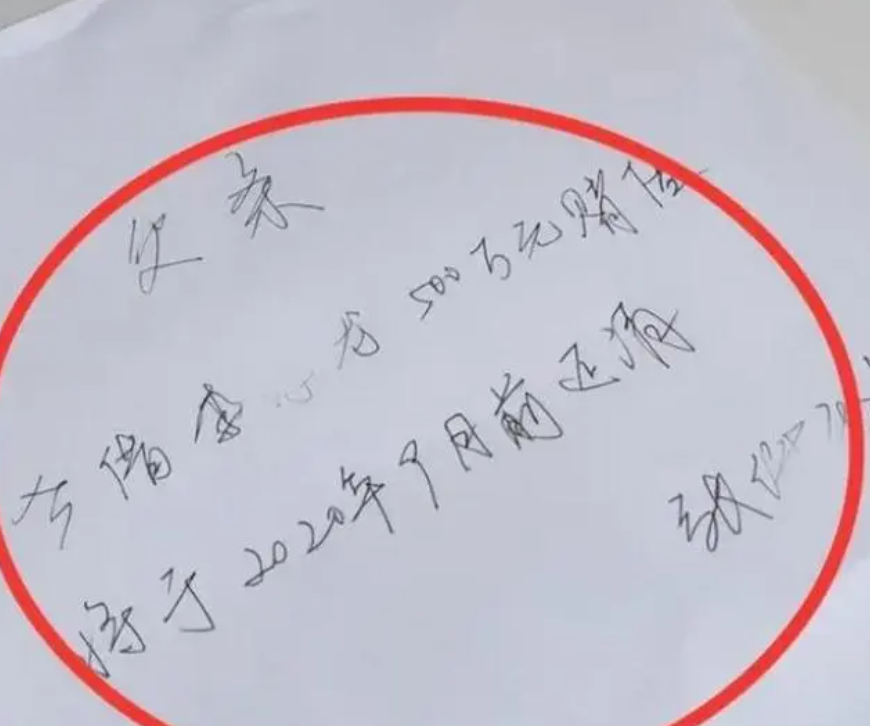 欠条
今借雷 500万元赌债
将于2020年9月前还清